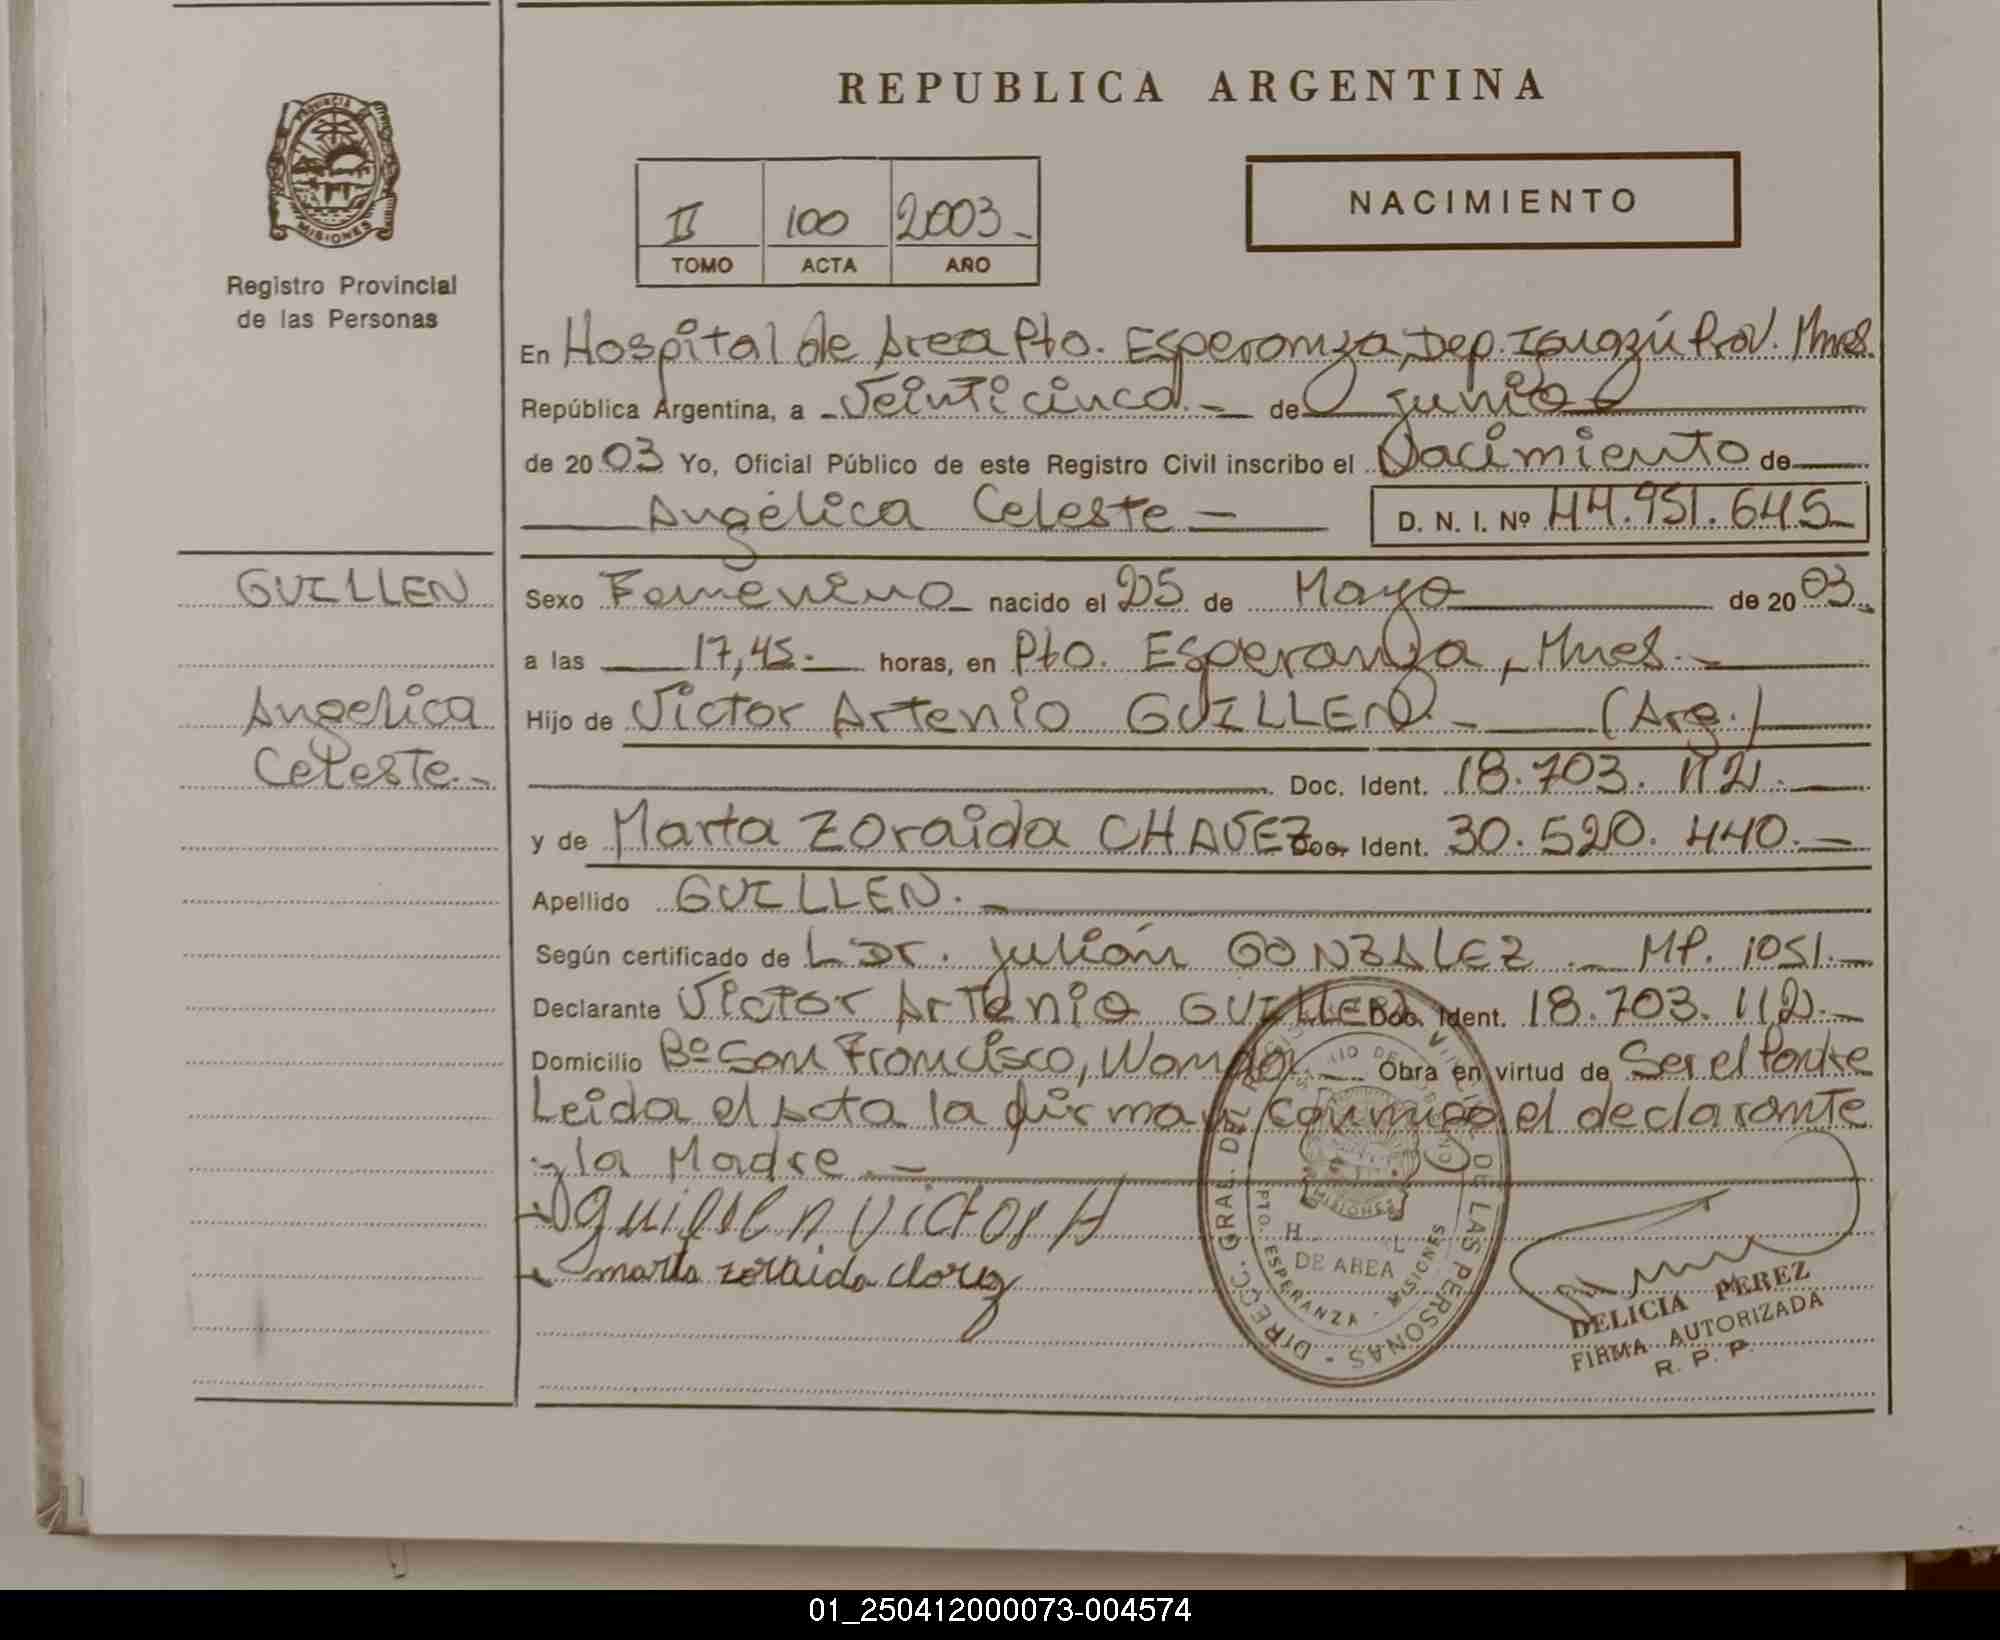 REPUBLICA ARGENTINA
PROVINCIA
MISIONES
Registro Provincial
de las Personas
II 100 2003.-
TOMO ACTA AÑO
NACIMIENTO
En Hospital de Area Pto. Esperanza, Dep. Iguazú Prov. Mnes.
República Argentina, a - Veinticinco.- de junio
de 2003 Yo, Oficial Público de este Registro Civil inscribo el Nacimiento de
Angélica Celeste -
D. N. I. Nº 44.951.645-
GUILLEN
Angelica
Celeste.-
Sexo Femenino - nacido el 25 de Mayo de 2003.
a las 17,45.- horas, en Pto. Esperanza, Mnes.-
Hijo de Victor Artenio GUILLEN.- (Arg.)
Doc. Ident. 18.703.112.-
y de Marta Zoraida CHAVEZ Doc. Ident. 30.520.440.-
Apellido GUILLEN.-
Según certificado de Dr. Julián GONZALEZ.- MP. 1051.-
Declarante Victor Artenio GUILLEN Doc. Ident. 18.703.112.-
Domicilio Bº San Francisco, Wanda.- Obra en virtud de Ser el Padre
Leida el Acta la firman conmigo el declarante
y la Madre.-
guillen victor A
marta zoraida
DIRECC. GRAL. DE DE LAS PERSONAS -
DE AREA
PTO. ESPERANZA - MISIONES
MISIONES
DELICIA PEREZ
FIRMA AUTORIZADA
R. P. P.
01_250412000073-004574